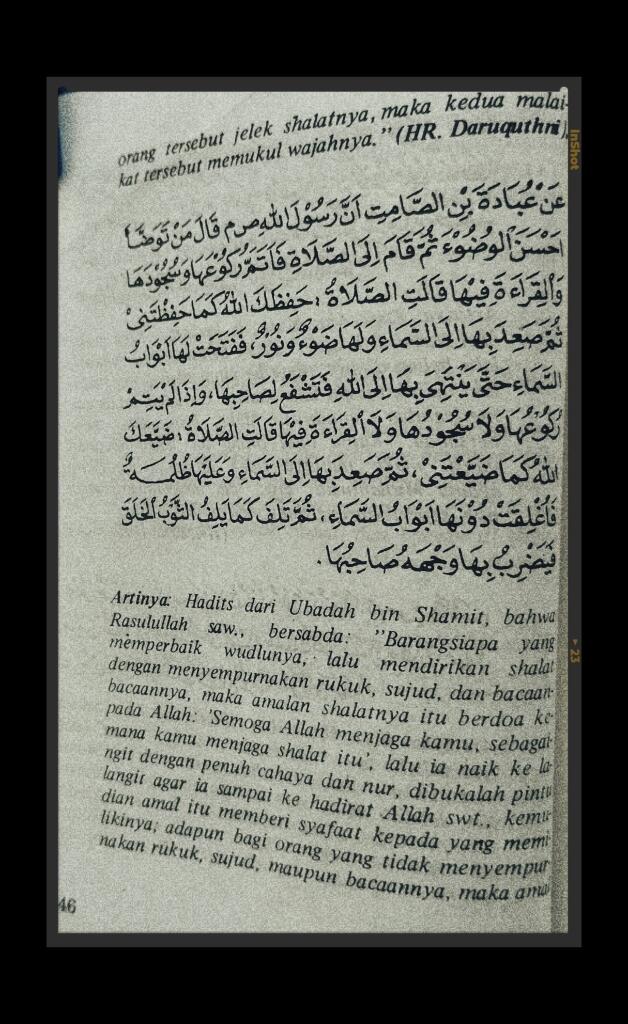 orang tersebut jelek shalatnya, maka kedua malai-
kat tersebut memukul wajahnya." (HR. Daruquthni).
عَنْ عُبَادَةَ بْنِ الصَّامِتِ اَنَّ رَسُوْلَ اللهِ ص م قَالَ مَنْ تَوَضَّأَ
اَحْسَنَ الْوُضُوْءَ ثُمَّ قَامَ اِلَى الصَّلَاةِ فَاَتَمَّ رُكُوْعَهَا وَسُجُوْدَهَا
وَالْقِرَاءَةَ فِيْهَا قَالَتِ الصَّلَاةُ : حَفِظَكَ اللهُ كَمَا حَفِظْتَنِيْ
ثُمَّ صَعِدَ بِهَا اِلَى السَّمَاءِ وَلَهَا ضَوْءٌ وَنُوْرٌ، فَفُتِحَتْ لَهَا اَبْوَابُ
السَّمَاءِ حَتَّى يَنْتَهِيَ بِهَا اِلَى اللهِ فَتَشْفَعُ لِصَاحِبِهَا، وَاِذَا لَمْ يُتِمَّ
رُكُوْعَهَا وَلَا سُجُوْدَهَا وَلَا الْقِرَاءَةَ فِيْهَا قَالَتِ الصَّلَاةُ : ضَيَّعَكَ
اللهُ كَمَا ضَيَّعْتَنِيْ، ثُمَّ صَعِدَ بِهَا اِلَى السَّمَاءِ وَعَلَيْهَا ظُلْمَةٌ
فَاُغْلِقَتْ دُوْنَهَا اَبْوَابُ السَّمَاءِ، ثُمَّ تُلَفُّ كَمَا يُلَفُّ الثَّوْبُ الْخَلَقُ
فَيُضْرَبُ بِهَا وَجْهَهُ صَاحِبُهَا.
Artinya: Hadits dari Ubadah bin Shamit, bahwa
Rasulullah saw., bersabda: "Barangsiapa yang
memperbaik wudlunya, lalu mendirikan shalat
dengan menyempurnakan rukuk, sujud, dan bacaan-
bacaannya, maka amalan shalatnya itu berdoa ke-
pada Allah: 'Semoga Allah menjaga kamu, sebagai-
mana kamu menjaga shalat itu', lalu ia naik ke la-
ngit dengan penuh cahaya dan nur, dibukalah pintu
langit agar ia sampai ke hadirat Allah swt., kemu-
dian amal itu memberi syafaat kepada yang memi-
likinya; adapun bagi orang yang tidak menyempur-
nakan rukuk, sujud, maupun bacaannya, maka amal
46
InShot
23